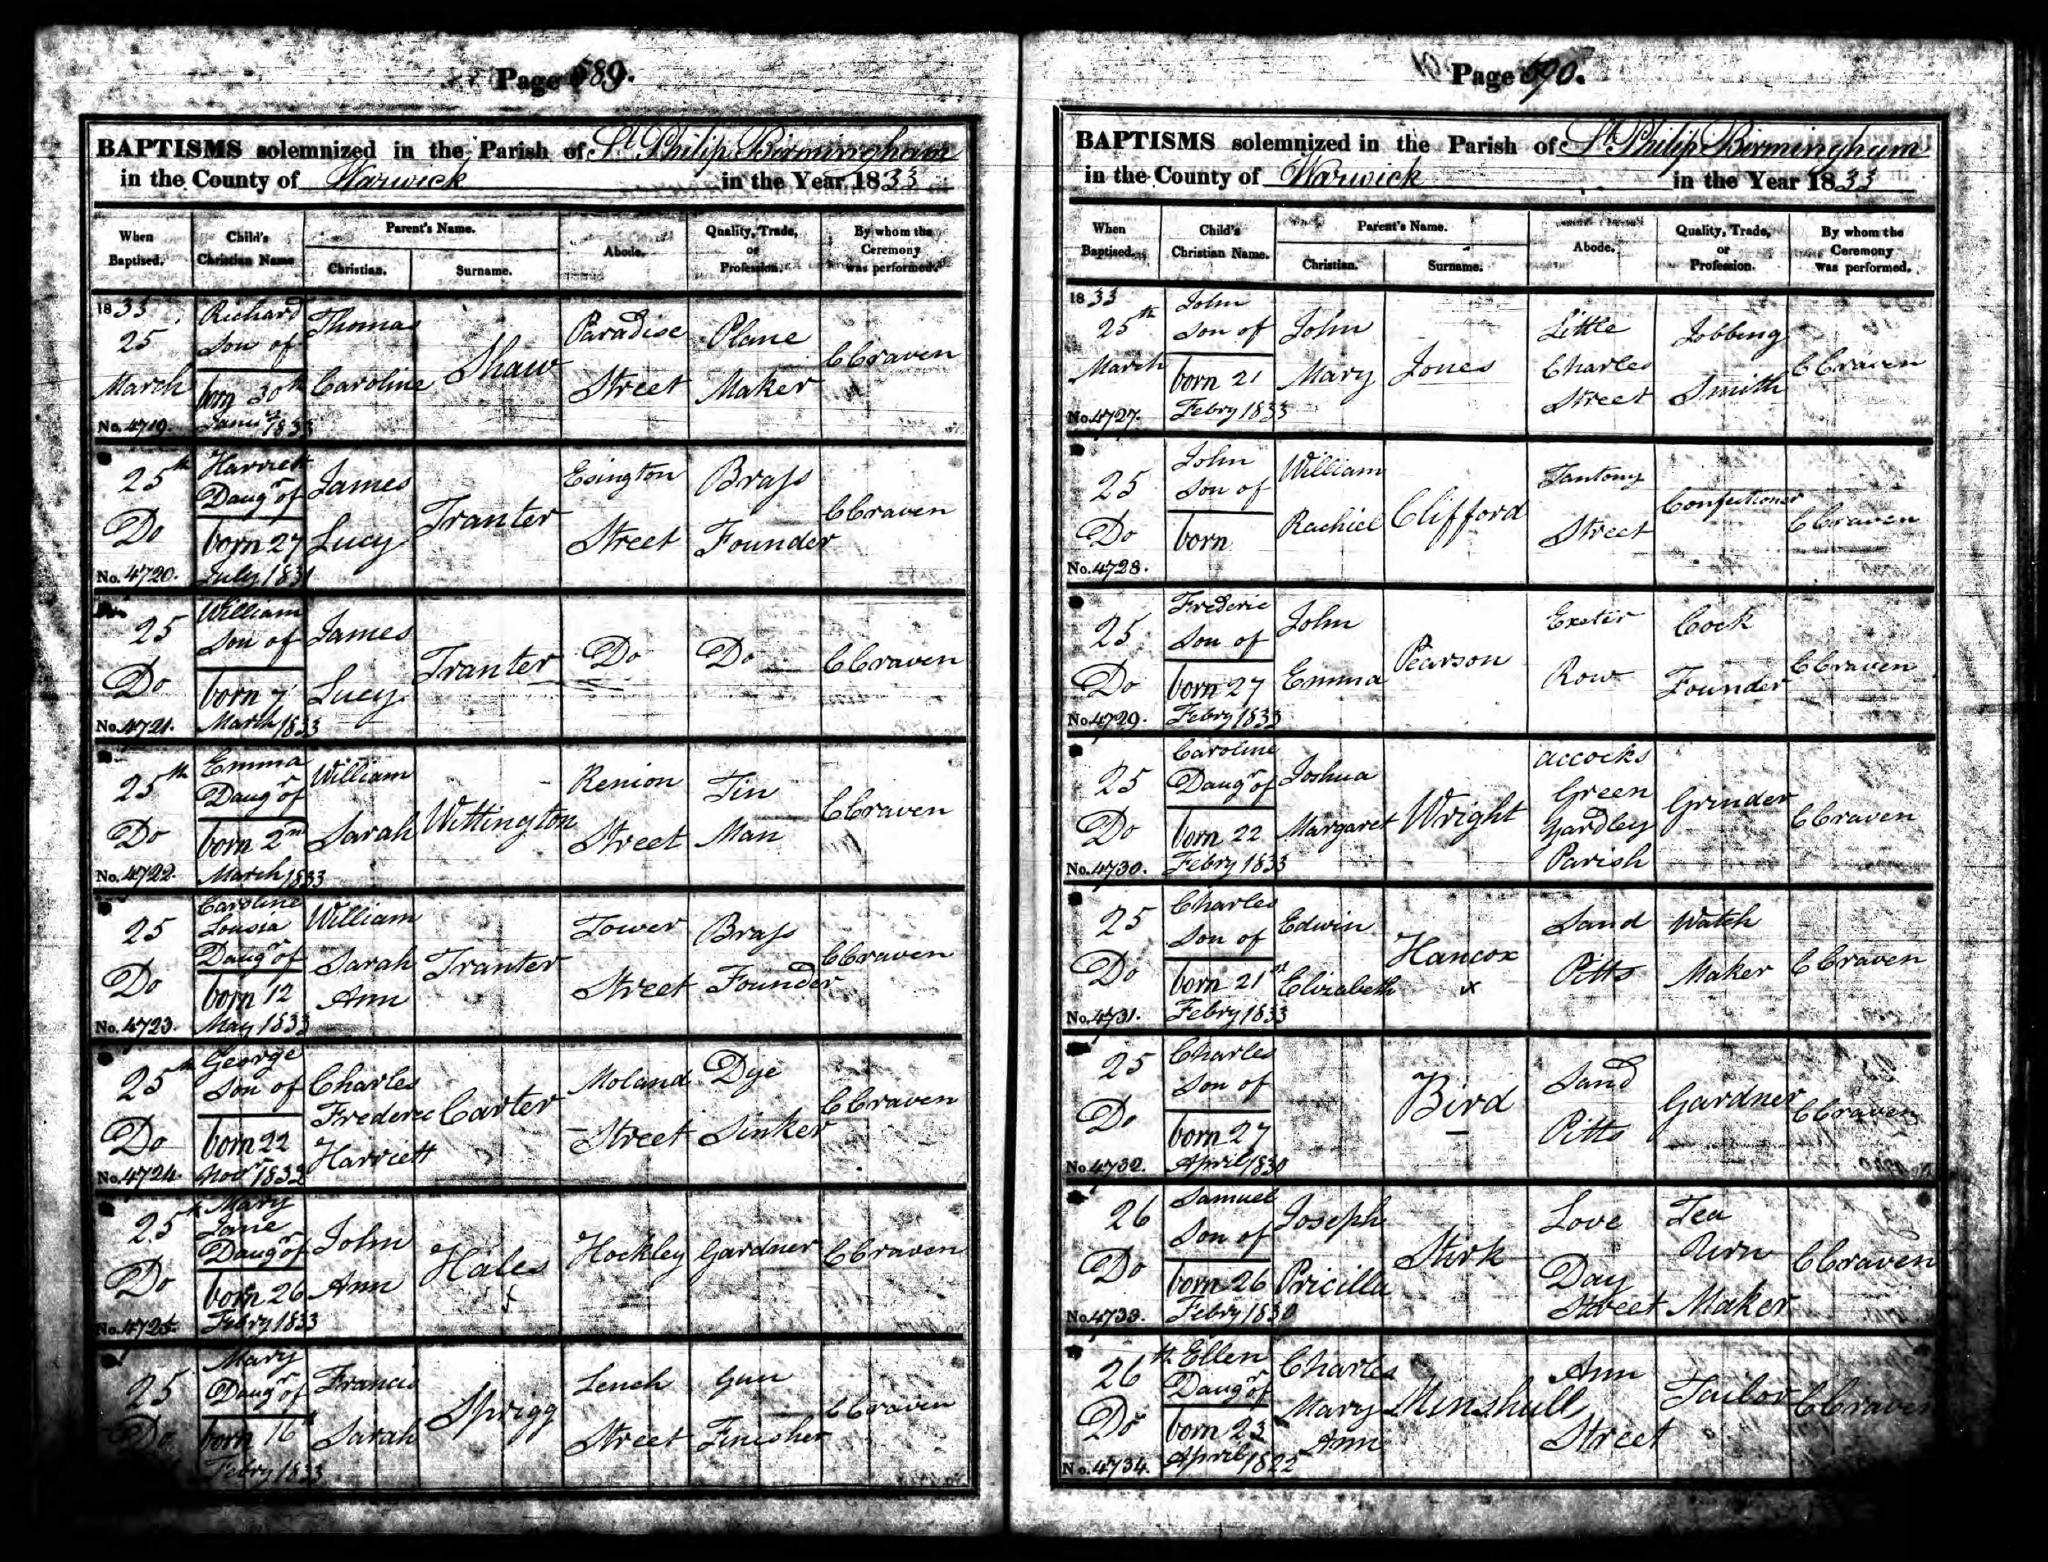 Page 589.
BAPTISMS solemnized in the Parish of St. Philip Birmingham
in the County of Warwick in the Year 1833
When Baptised.
Child's Christian Name
Parent's Name.
Christian.
Surname.
Abode.
Quality, Trade, or Profession.
By whom the Ceremony was performed.
1833
25
March
No. 4719.
Richard
Son of
born 30th
1833
Thomas
Caroline
Shaw
Paradise
Street
Plane
Maker
C Craven
25th
Do
No. 4720.
Harriett
Daugr of
born 27
July 1831
James
Lucy
Tranter
Esington
Street
Brass
Founder
C Craven
25
Do
No. 4721.
William
Son of
born 7
March 1833
James
Lucy
Tranter
Do
Do
C Craven
25th
Do
No. 4722.
Emma
Daugr of
born 2nd
March 1833
William
Sarah
Wittington
Renion
Street
Tin
Man
C Craven
25
Do
No. 4723.
Caroline
Lousia
Daugr of
born 12
May 1833
William
Sarah
Ann
Tranter
Tower
Street
Brass
Founder
C Craven
25th
Do
No. 4724.
George
Son of
born 22
Novr 1832
Charles
Frederic
Harriett
Carter
Moland
Street
Dye
Sinker
C Craven
25th
Do
No. 4725.
Mary
Jane
Daugr of
born 26
Febry 1833
John
Ann
Hales
x
Hockley
Gardner
C Craven
25
Do
Mary
Daugr of
born 16
Febry 1833
Francis
Sarah
Sprigg
Lench
Street
Gun
Finisher
C Craven
Page 590.
BAPTISMS solemnized in the Parish of St. Philip Birmingham
in the County of Warwick in the Year 1833
When Baptised.
Child's Christian Name.
Parent's Name.
Christian.
Surname.
Abode.
Quality, Trade, or Profession.
By whom the Ceremony was performed.
1833
25th
March
No. 4727.
John
Son of
born 21
Febry 1833
John
Mary
Jones
Little
Charles
Street
Jobbing
Smith
C Craven
25
Do
No. 4728.
John
Son of
born
William
Rachiel
Clifford
Tantony
Street
Confectioner
C Craven
25
Do
No. 4729.
Frederic
Son of
born 27
Febry 1833
John
Emma
Pearson
Exeter
Row
Cock
Founder
C Craven
25
Do
No. 4730.
Caroline
Daugr of
born 22
Febry 1833
Joshua
Margaret
Wright
accocks
Green
Yardley
Parish
Grinder
C Craven
25
Do
No. 4731.
Charles
Son of
born 21st
Febry 1833
Edwin
Elizabeth
Hancox
x
Sand
Pitts
Watch
Maker
C Craven
25
Do
No. 4732.
Charles
Son of
born 27
April 1830
Bird
Sand
Pitts
Gardner
C Craven
26
Do
No. 4733.
Samuel
Son of
born 26
Febry 1830
Joseph
Pricilla
Stirk
Love
Day
Street
Tea
Urn
Maker
C Craven
26th
Do
No. 4734.
Ellen
Daugr of
born 23
April 1822
Charles
Mary
Ann
Minshull
Ann
Street
Tailor
C Craven